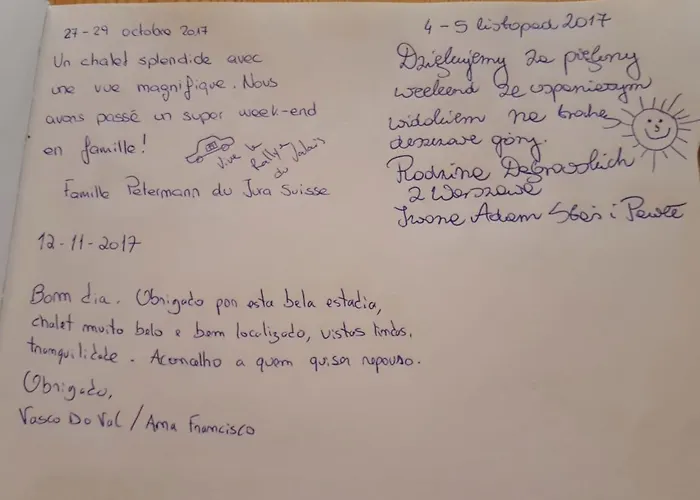 27-29 octobre 2017
Un chalet splendide avec
une vue magnifique. Nous
avons passé un super week-end
en famille!
Vive le
Rallye
du Valais
Famille Petermann du Jura Suisse
4-5 listopad 2017
Dziękujemy za piękny
weekend ze wspaniałym
widokiem na trochę
deszczowe góry.
Rodzina Dąbrowskich
z Warszawy
Iwona Adam i Paweł
12-11-2017
Bom dia. Obrigado por esta bela estadia,
chalet muito belo e bem localizado, vistas lindas,
tranquilidade. Aconselho a quem quiser repouso.
Obrigado,
Vasco Do Val / Ana Francisco